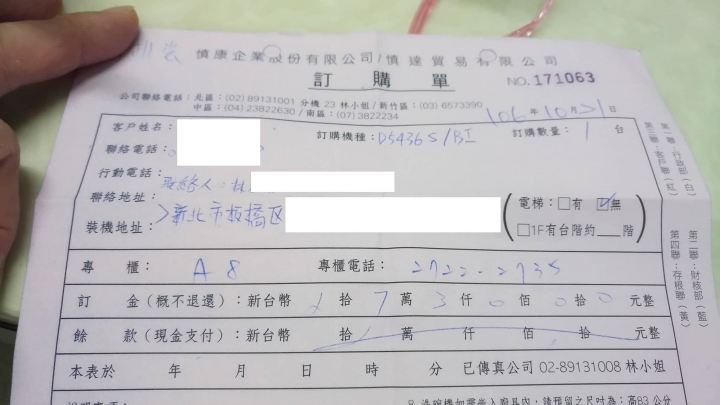 慎康企業股份有限公司/慎達貿易有限公司
訂購單
NO.171063
公司聯絡電話：北區：(02) 89131001 分機 23 林小姐 / 新竹區：(03) 6573390
中區：(04) 23822630 / 南區：(07) 3822234
106年10月21日
客戶姓名：
訂購機種：D5436S/BI
訂購數量：1 台
聯絡電話：
行動電話：聯絡人：林
聯絡地址：
>新北市板橋區
裝機地址：
電梯：□有 ☑無
□1F有台階約__階
專櫃：A8
專櫃電話：2722-2735
訂金(概不退還)：新台幣 拾7萬3仟0佰0拾0元整
餘款(現金支付)：新台幣 拾萬仟佰拾元整
本表於 年 月 日 時 分 已傳真公司 02-89131008 林小姐
8. 洗碗機如需嵌入廚具內，請預留之尺寸為：高83公分
第一聯：行政部(白)
第二聯：財核部(藍)
第三聯：客戶聯(紅)
第四聯：存根聯(黃)